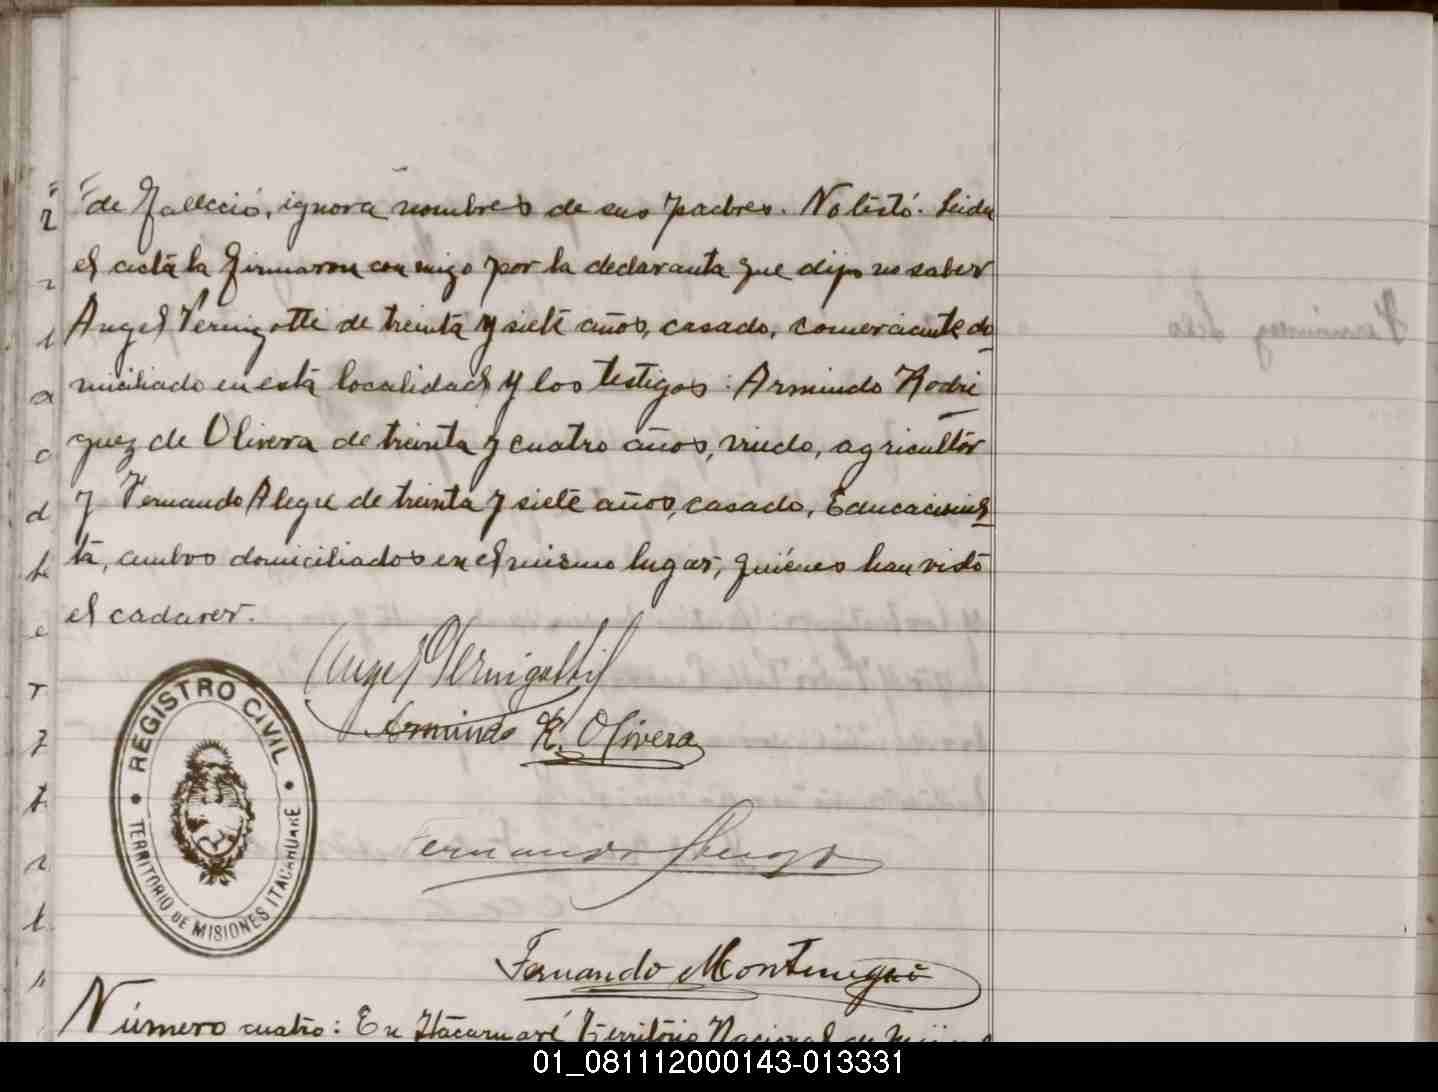 de Falleció, ignora nombres de sus padres. No testó. Leida
el acta la firmaron conmigo por la declaranta que dijo no saber
Angel Vernigotti de treinta y siete años, casado, comerciante do
miciliado en esta localidad y los testigos: Armindo Rodri
guez de Olivera de treinta y cuatro años, viudo, agricultor
y Fernando Alegre de treinta y siete años, casado, Educacionis
ta, ambos domiciliados en el mismo lugar, quiénes han visto
el cadaver.
Angel Vernigotti
Armindo R. Olivera
REGISTRO CIVIL
TERRITORIO DE MISIONES ITACARUARE
Fernando
Fernando Montenegro
Número cuatro: En Itacaruaré Territorio Nacional de
01_081112000143-013331